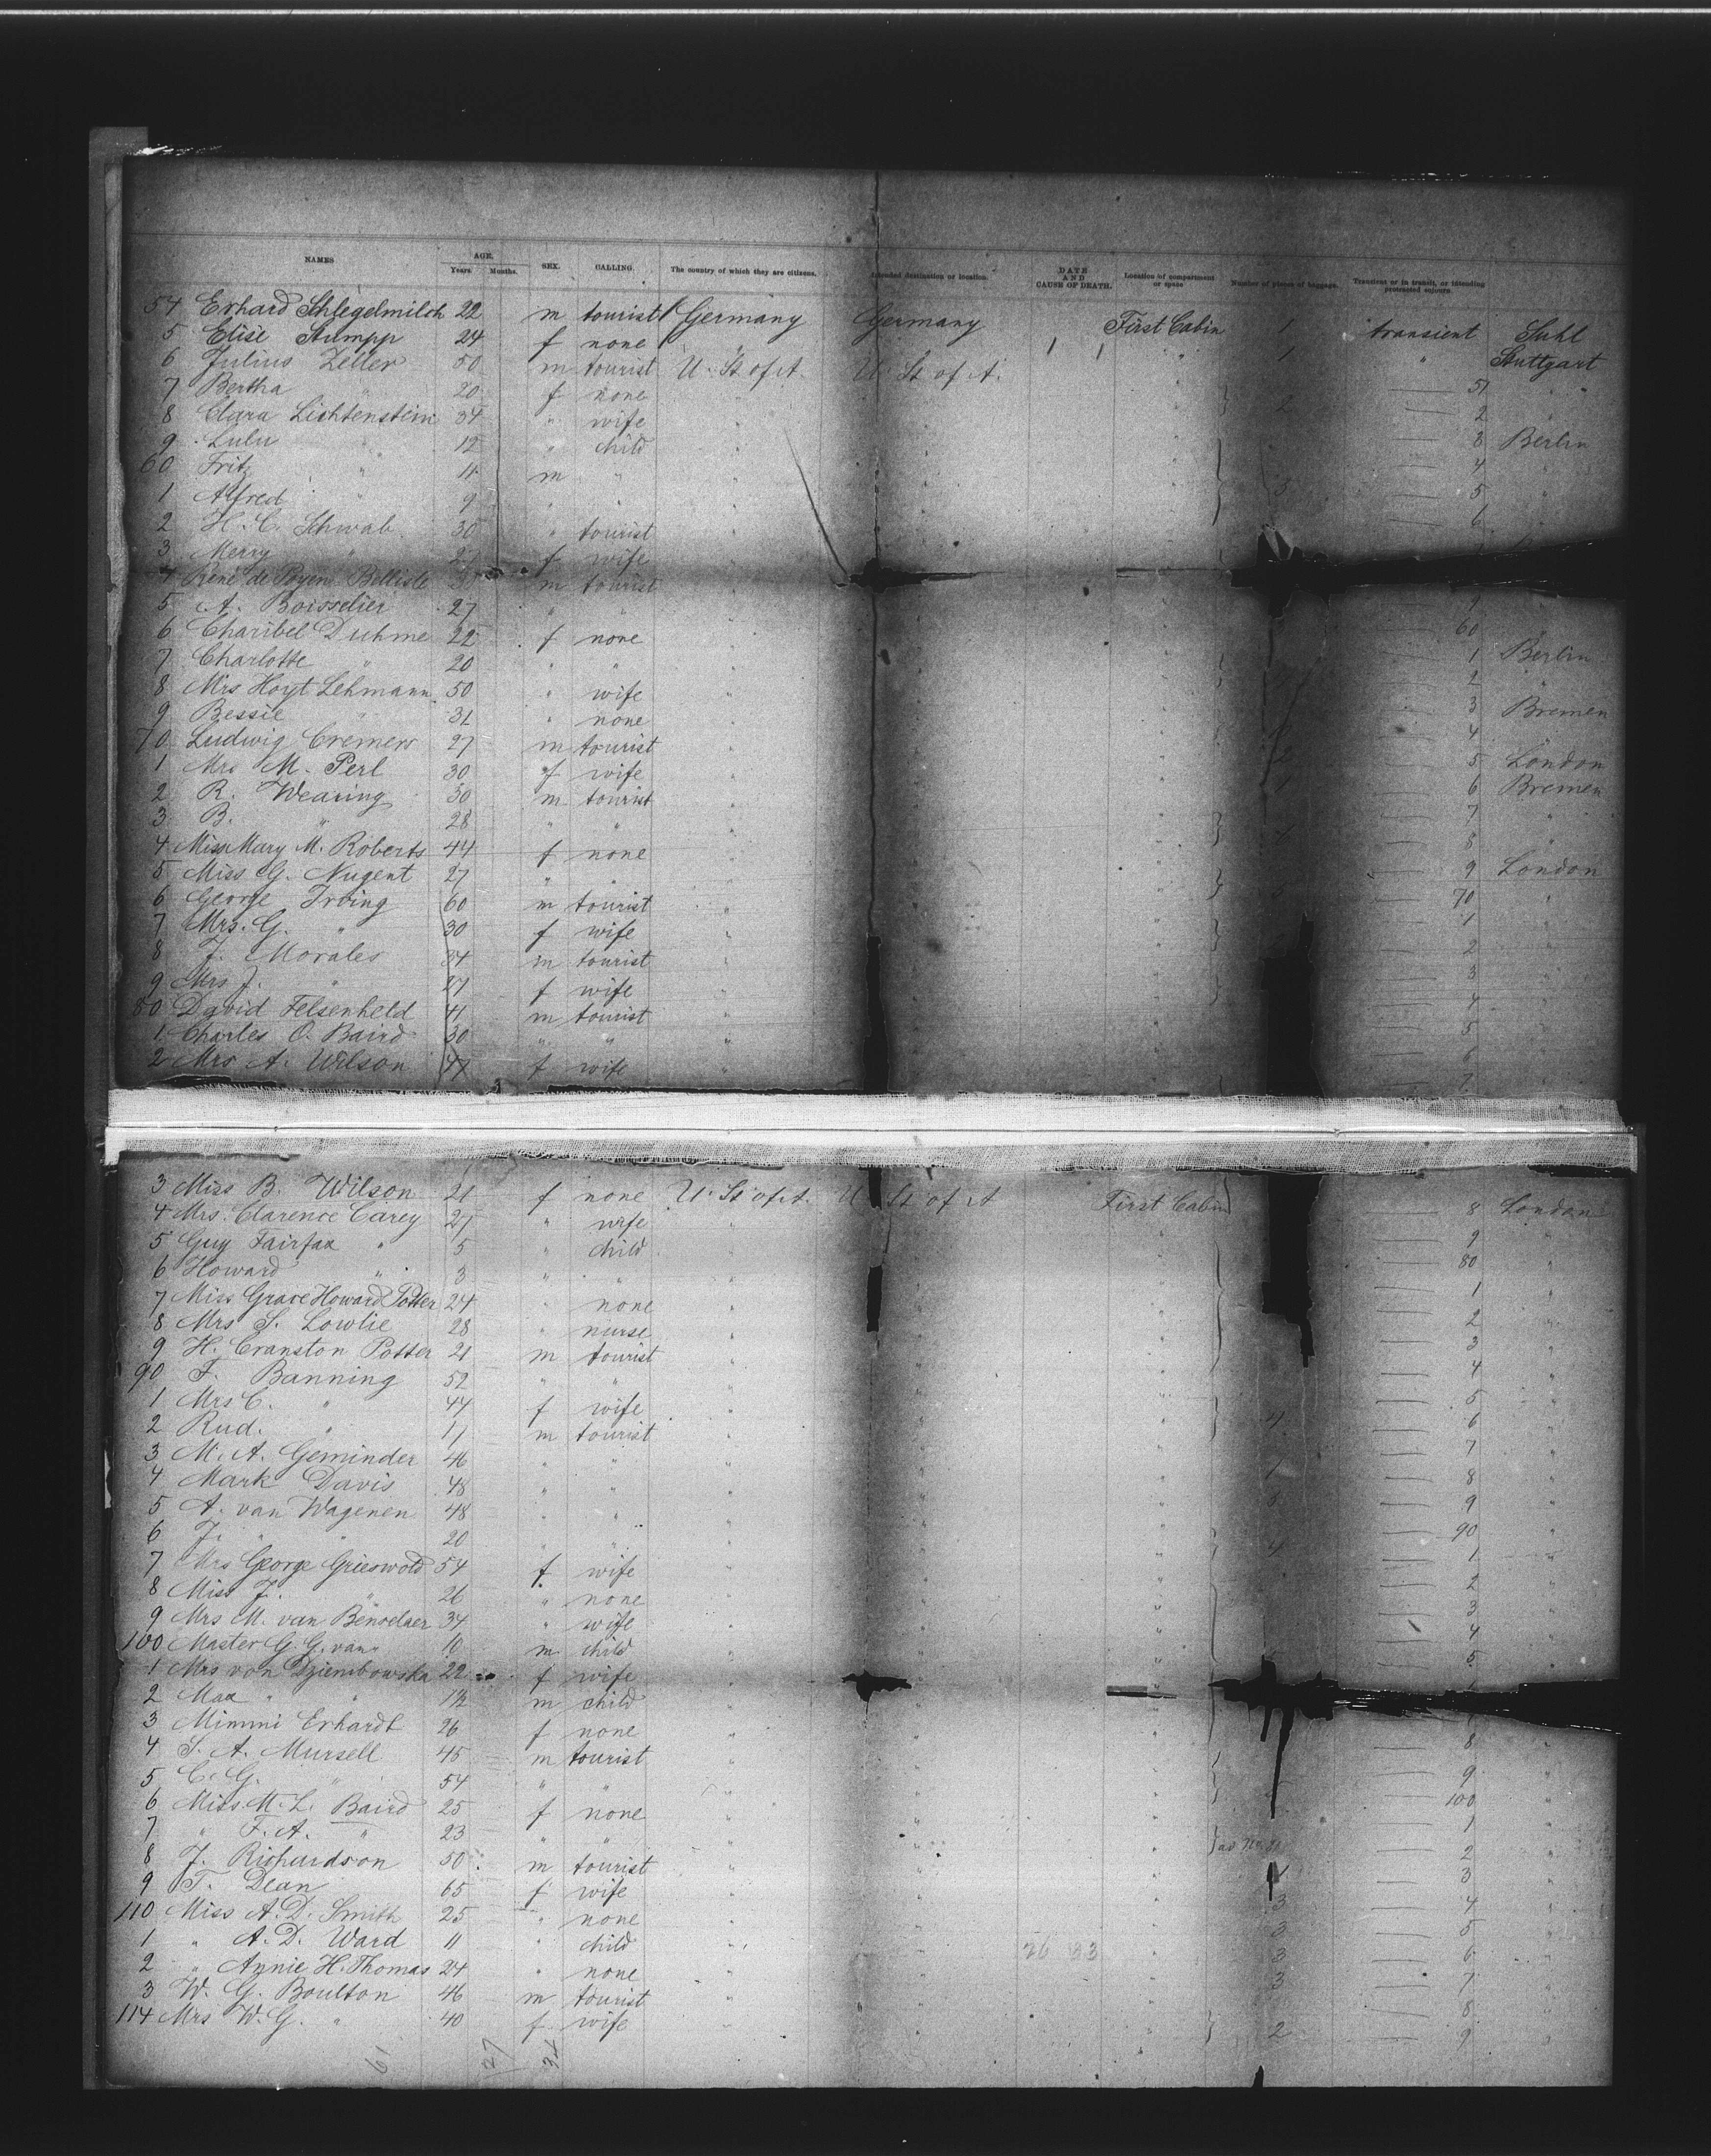 NAMES AGE. Years. Months. SEX. CALLING. The country of which they are citizens. Intended destination or location. DATE AND CAUSE OF DEATH. Location of compartment or space Number of pieces of baggage. Transient or in transit, or intending protracted sojourn.
54 Erhard Schlegelmilch 22 m tourist Germany Germany First Cabin 1 transient Suhl
5 Elise Stumpp 24 f none " " " 1 " Stuttgart
6 Julius Zeller 50 m tourist U. St. of A. U. St. of A. " — 51 "
7 Bertha " 20 f none " " " } 2 — 2 "
8 Clara Lichtenstein 34 " wife " " " — 3 Berlin
9 Lulu " 12 " child " " " — 4 "
60 Fritz " 4 m " " " " 3 — 5 "
1 Alfred " 9 " " " " " — 6 "
2 H. C. Schwab 30 " tourist " " "
3 Merry " 27 f wife " " "
4 René de Poyen Bellisle m tourist " " " — 9 "
5 A. Boisselier 27 " " " " " — 60 "
6 Charibel Duhme 22 f none " " " — 1 Berlin
7 Charlotte " 20 " " " " " — 2 "
8 Mrs Hoyt Lehmann 50 " wife " " " — 3 Bremen
9 Bessie " 31 " none " " " — 4 "
70 Ludwig Cremer 27 m tourist " " " 2 — 5 London
1 Mrs M. Perl 30 f wife " " " 1 — 6 Bremen
2 R. Wearing 30 m tourist " " " — 7 "
3 B. " 28 " " " " " } — 8 "
4 Miss Mary M. Roberts 44 f none " " " — 9 London
5 Miss G. Nugent 27 " " " " " } — 70 "
6 George Irving 60 m tourist " " " — 1 "
7 Mrs. G. " 30 f wife " " " } — 2 "
8 J. Morales 34 m tourist " " " — 3 "
9 Mrs J. " 27 f wife " " " } — 4 "
80 David Felsenheld 41 m tourist " " " — 5 "
1 Charles O. Baird 30 " " " " " — 6 "
2 Mrs A. Wilson 47 f wife " " " — 7 "
3 Miss B. Wilson 21 f none U. St. of A. U. St of A First Cabin — 8 London
4 Mrs. Clarence Carey 27 " wife " " " — 9 "
5 Guy Fairfax " 5 " child " " " — 80 "
6 Howard " 3 " " " " " — 1 "
7 Miss Grace Howard Potter 24 " none " " " — 2 "
8 Mrs S. Lowlie 28 " nurse " " " — 3 "
9 H. Cranston Potter 21 m tourist " " " — 4 "
90 F. Banning 52 " " " " " — 5 "
1 Mrs C. " 44 f wife " " " 4 — 6 "
2 Rud. " 11 m tourist " " " — 7 "
3 M. A. Geminder 46 " " " " " 1 — 8 "
4 Mark Davis 48 " " " " " 3 — 9 "
5 A. van Wagenen 48 " " " " " — 90 "
6 J. " " 20 " " " " " 4 — 1 "
7 Mrs George Grieswold 54 f wife " " " — 2 "
8 Miss J. " 26 " none " " " — 3 "
9 Mrs M. van Benselaer 34 " wife " " " — 4 "
100 Master G. G. van " 10 m child " " " 5 — 5 "
1 Mrs von Dziembowska 22 f wife " " "
2 Max " " 1½ m child " " "
3 Mimmi Erhardt 26 f none " " " — 8 "
4 S. A. Mursell 45 m tourist " " " — 9 "
5 C. G. " 54 " " " " " } — 100 "
6 Miss M. L. Baird 25 f none " " " — 1 "
7 " F. A. " 23 " " " " " } as No. 81 — 2 "
8 J. Richardson 50 m tourist " " " — 3 "
9 T. Dean 65 f wife " " " 3 — 4 "
110 Miss A. D. Smith 25 " none " " " 3 — 5 "
1 " A. D. Ward 11 " child " " 76 83 " 3 — 6 "
2 " Aynie H. Thomas 24 " none " " " 3 — 7 "
3 W. G. Boulton 46 m tourist " " " — 8 "
114 Mrs W. G. " 40 f wife " " " } 2 — 9 "
61 27 34